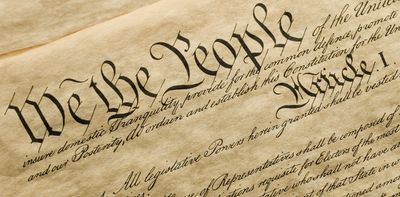 We the People of the United
insure domestic Tranquility, provide for the common defence, promote
and our Posterity, do ordain and establish this Constitution for the Uni
Article I.
All legislative Powers herein granted shall be vested
of Representatives shall be composed of
requisite for Electors of the most
who shall not have at
of that State in w